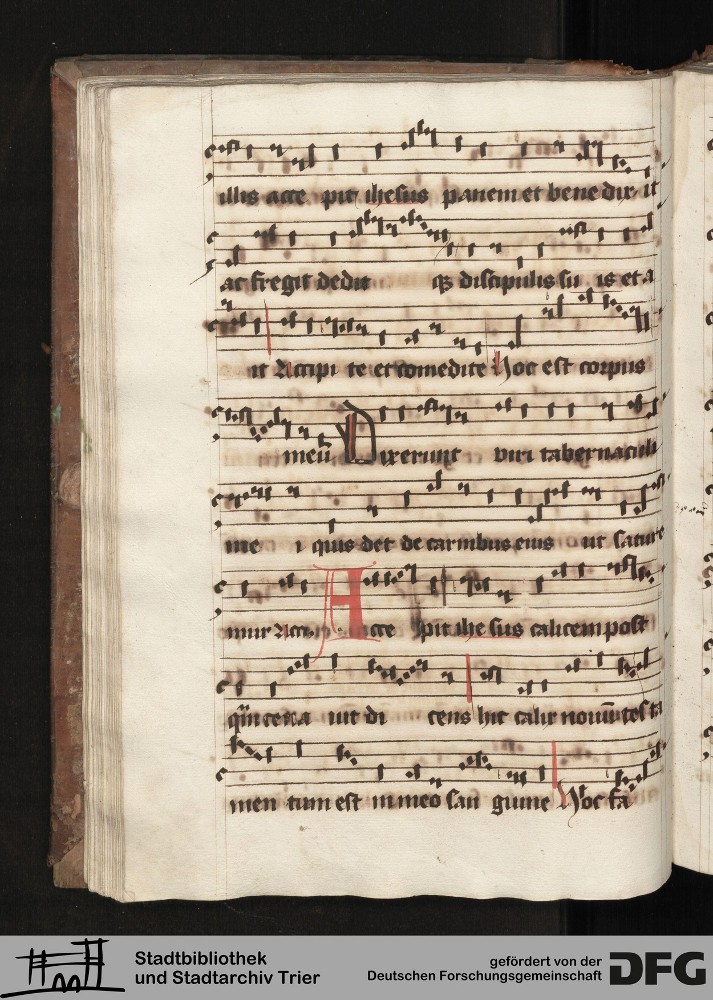 illis acce pit ihesus panem et bene dix it
ac fregit dedit qꝫ discipulis su is et a
it Accipi te et comedite Hoc est corpus
meū Dixerunt viri tabernaculi
me i quis det de carnibus eius ut sature
mur Acci Acce pit ihesus calicem post
q̄m cena uit di cens hic calix nouū testa
men tum est in meo san guine Hoc fa
Stadtbibliothek
und Stadtarchiv Trier
gefördert von der
Deutschen Forschungsgemeinschaft
DFG